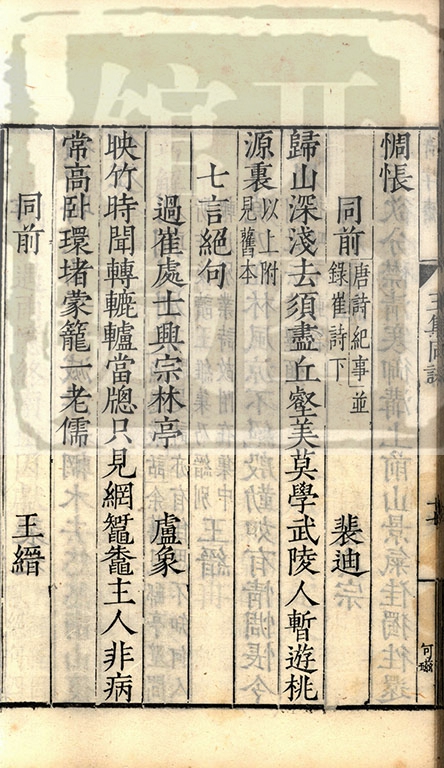 惆悵
同前 唐詩紀事並錄崔詩下 裴迪
歸山深淺去須盡丘壑美莫學武陵人暫遊桃
源裏 以上附見舊本
七言絕句
過崔處士興宗林亭 盧象
映竹時聞轉轆轤當牕只見網鼅鼄主人非病
常高卧環堵蒙籠一老儒
同前 王縉